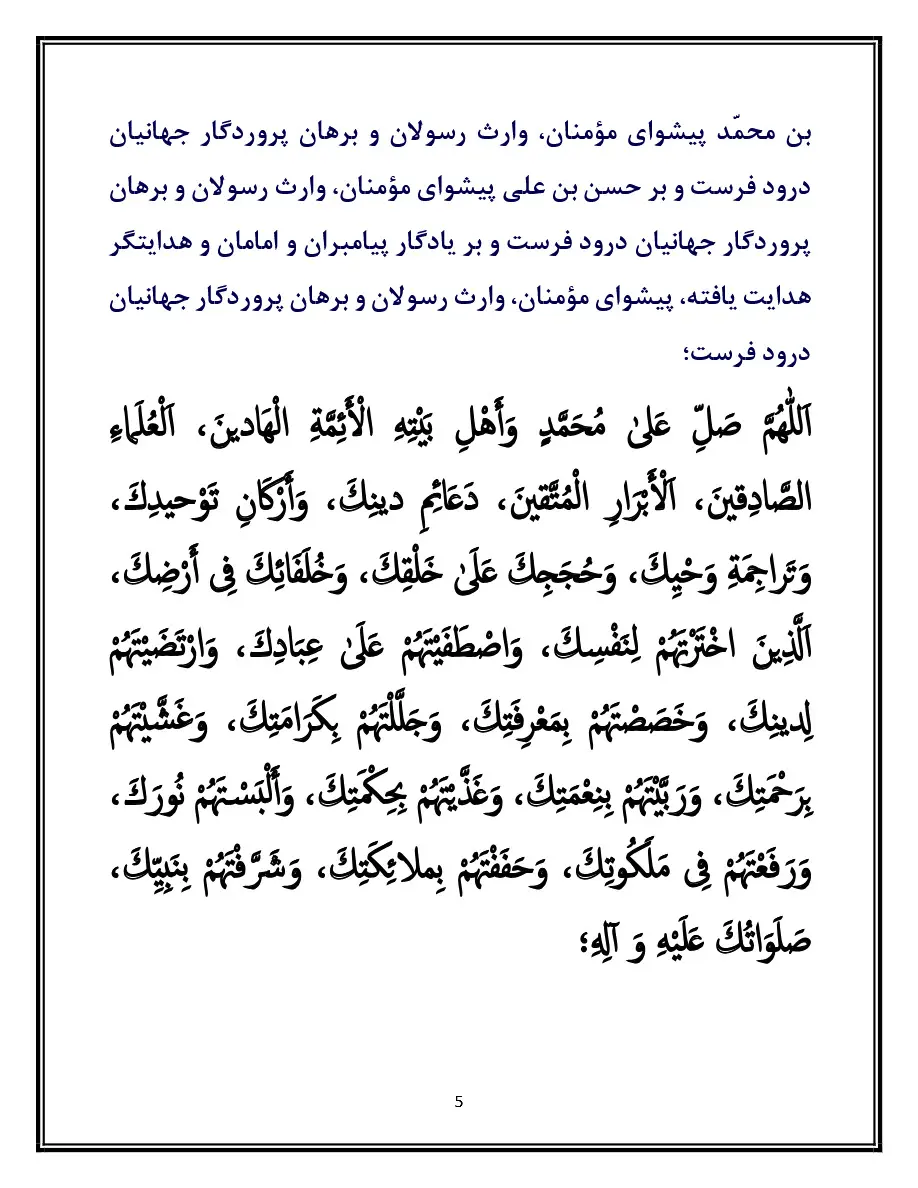 بن محمّد پیشوای مؤمنان، وارث رسولان و برهان پروردگار جهانیان
درود فرست و بر حسن بن علی پیشوای مؤمنان، وارث رسولان و برهان
پروردگار جهانیان درود فرست و بر یادگار پیامبران و امامان و هدایتگر
هدایت یافته، پیشوای مؤمنان، وارث رسولان و برهان پروردگار جهانیان
درود فرست؛
اَللّٰهُمَّ صَلِّ عَلىٰ مُحَمَّدٍ وَأَهْلِ بَيْتِهِ الْأَئِمَّةِ الْهَادينَ، اَلْعُلَماءِ
الصَّادِقينَ، اَلْأَبْرَارِ الْمُتَّقينَ، دَعَائِمِ دينِكَ، وَأَرْكَانِ تَوْحيدِكَ،
وَتَراجِمَةِ وَحْيِكَ، وَحُجَجِكَ عَلَىٰ خَلْقِكَ، وَخُلَفَائِكَ فِى أَرْضِكَ،
اَلَّذِينَ اخْتَرْتَهُمْ لِنَفْسِكَ، وَاصْطَفَيْتَهُمْ عَلَىٰ عِبَادِكَ، وَارْتَضَيْتَهُمْ
لِدينِكَ، وَخَصَصْتَهُمْ بِمَعْرِفَتِكَ، وَجَلَّلْتَهُمْ بِكَرَامَتِكَ، وَغَشَّيْتَهُمْ
بِرَحْمَتِكَ، وَرَبَّيْتَهُمْ بِنِعْمَتِكَ، وَغَذَّيْتَهُمْ بِحِكْمَتِكَ، وَأَلْبَسْتَهُمْ نُورَكَ،
وَرَفَعْتَهُمْ فِى مَلَكُوتِكَ، وَحَفَفْتَهُمْ بِملائِكَتِكَ، وَشَرَّفْتَهُمْ بِنَبِيِّكَ،
صَلَوَاتُكَ عَلَيْهِ وَ آلِهِ؛
5